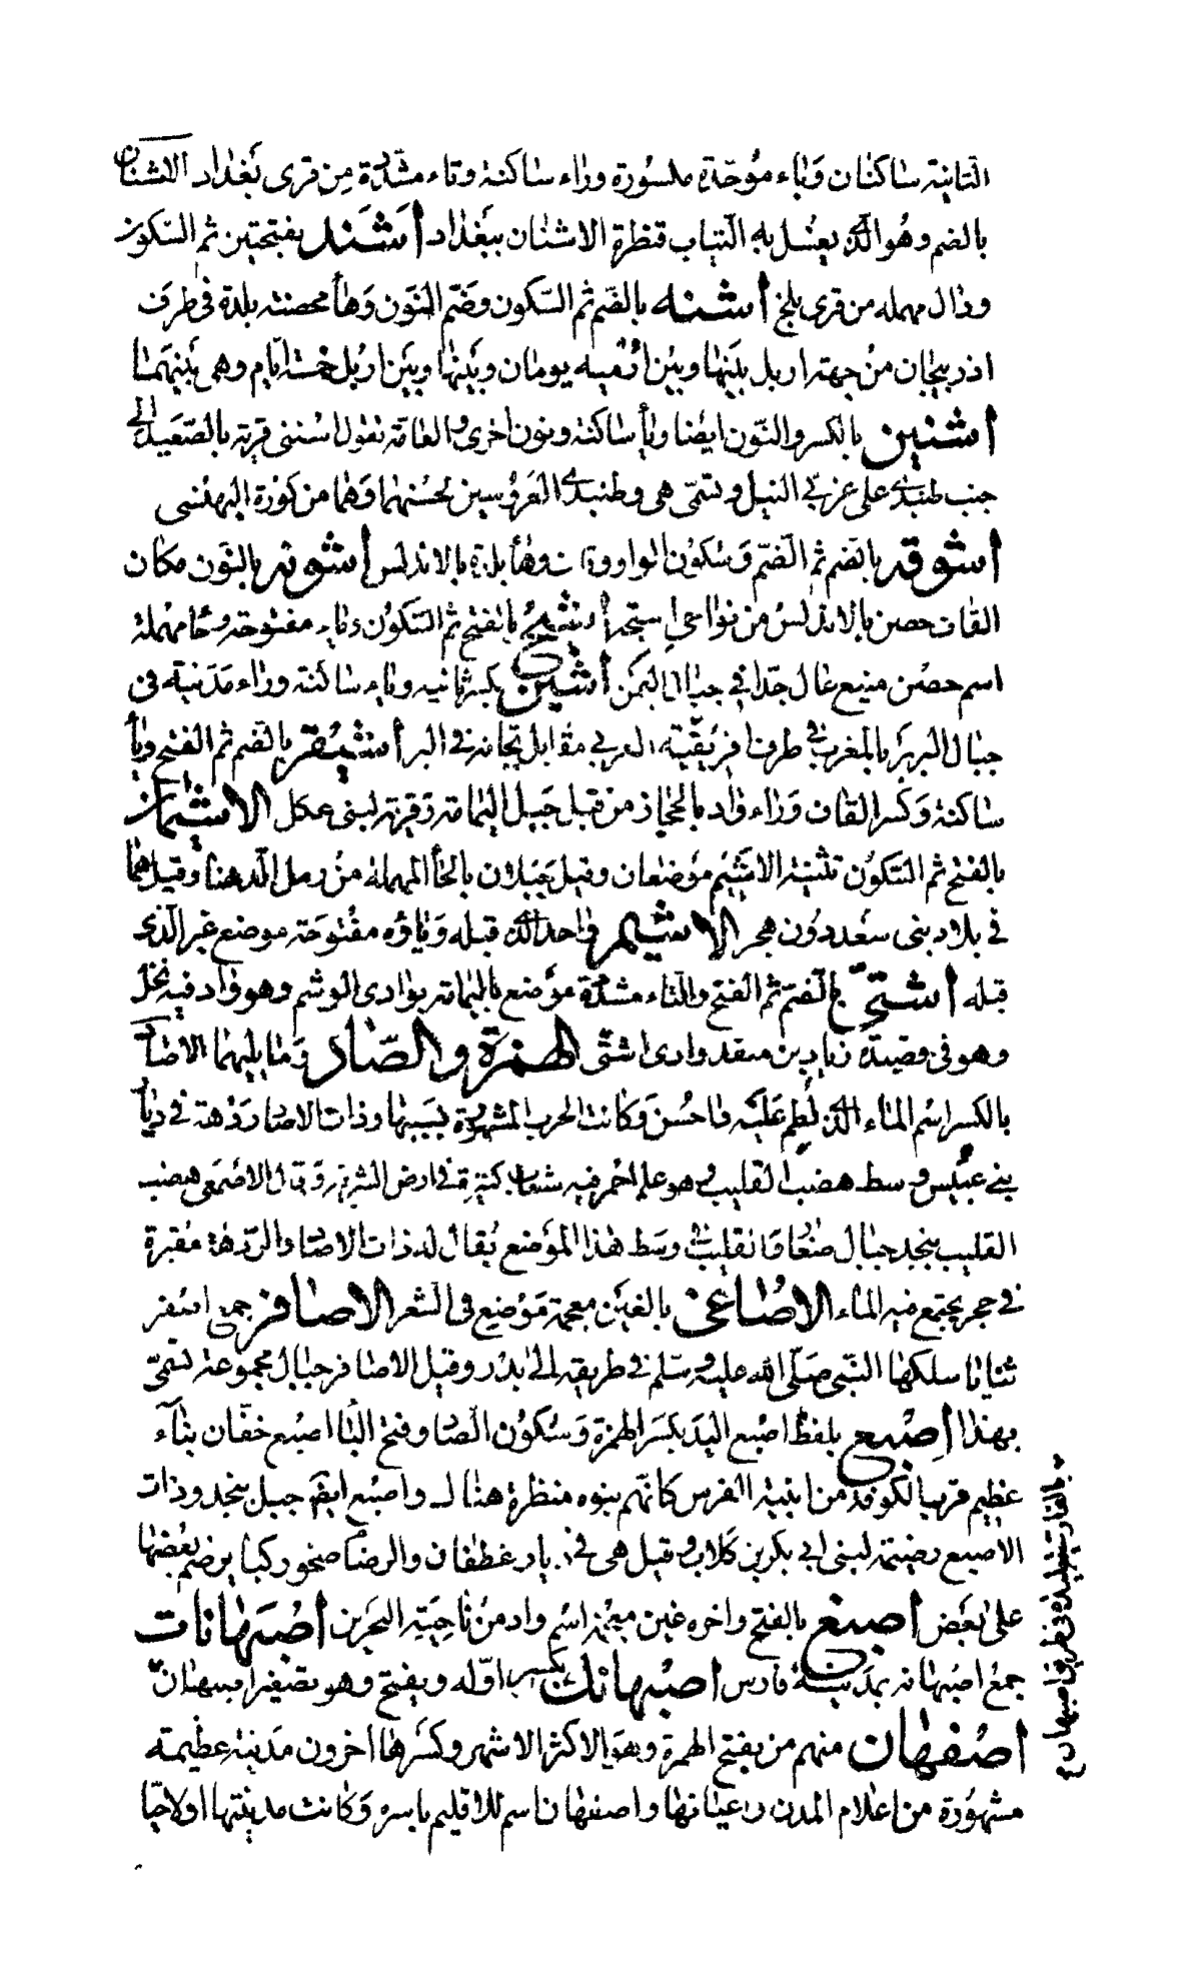 الثانية ساكنان وباء موحدة مكسورة وراء ساكنة وتاء مشددة من قرى بغداد الاشنان
بالضم وهو الذى يغسل به الثياب قنطرة الاشنان ببغداد أشند بفتحتين ثم السكون
ودال مهمله من قرى بلخ أشنه بالضم ثم السكون وضم النون وهأ محضته بلدة فى طرف
اذربيجان من جهة اربل بينها وبين أرميه يومان وبينها وبين اربل خمسة ايام وهى بينهما
أشنين بالكسر والنون ايضا ويأ ساكنة ونون اخرى والعامة تقول اسنى قرية بالصعيد الى
جنب طنبدى على غربى النيل وتسمى هى وطنبدى العروسين لحسنهما وهما من كورة البهنسى
أشوقه بالضم ثم الضم وسكون الواو وقاف وهأ بلدة بالاندلس أشونه بالنون مكان
القاف حصن بالاندلس من نواحى استجه أشيح بالفتح ثم السكون وياء مفتوحة وحا مهملة
اسم حصن منيع عال جدا فى جبال اليمن أشير بكسر ثانيه وياء ساكنة وراء مدنية فى
جبال البربر بالمغرب فى طرف افريقية الغربى مقابل بجاية فى البر أشيقر بالضم ثم الفتح ويأ
ساكنة وكسر القاف وراء واد بالحجاز من قبل جبيل اليمامة وقرية لبنى عكل الاشيمان
بالفتح ثم السكون تثنية الاشيم موضعان وقيل حبلان بالحأ المهملة من رمل الدهنا وقيل هما
فى بلاد بنى سعد دون هجر الاشيم واحد الذى قبله وياؤه مفتوحة موضع غير الذى
قبله أشىّ بالضم ثم الفتح والياء مشددة موضع باليمامة بوادى الوشم وهو واد فيه نخل
وهو فى قصيدة زياد بن منقذ وادى اشى الهمزة والصاد وما يليهما الاصاد
بالكسر اسم الماء الذى لطم عليه داحس وكانت الحرب المشهورة بسببها وذات الاصاد ردهة فى ديار
بنى عبس وسط هضب القليب وهو علم احمر فيه شعاب كثيرة فى ارض الشربة وقال الاصمعى هضب
القليب بنجد جبال صغار والقليب فى وسط هذا الموضع يقال له ذات الاصاد والردهة مقبرة
فى حجر يجتمع فيه الماء الاصاغى بالغين معجمة موضع فى الشعر الاصافر جمع اصفر
ثنايا سلكها النبى صلى الله عليه وسلم فى طريقه الى بدر وقيل الاصافر جبال مجموعة تسمى
بهذا اصبع بلفظ اصبع اليد بكسر الهمزة وسكون الصاد وفتح البا اصبع خفان بناء
عظيم قرب الكوفة من ابنية الفرس كانهم بنوه منظرة هناك واصبع ايضا جبل بنجد وذات
الاصبع رضيمة لبنى ابى بكر بن كلاب وقيل هى فى ديار غطفان والرضام صخور كبار يرضم بعضها
على بعض أصبغ بالفتح واخره غين معجمة اسم واد من ناحية البحرين أصبهانات
جمع اصبهانه بمدينة فارس أصبهانك بكسر اوله ويفتح وهو تصغير اصبهان
أصفهان منهم من يفتح الهمزة وهو الاكثر الاشهر وكسرها اخرون مدينة عظيمة
مشهورة من اعلام المدن واعيانها واصفهان اسم للاقليم باسره وكانت مدينتها اولا جيا
بليدة فى طريق اصبهان